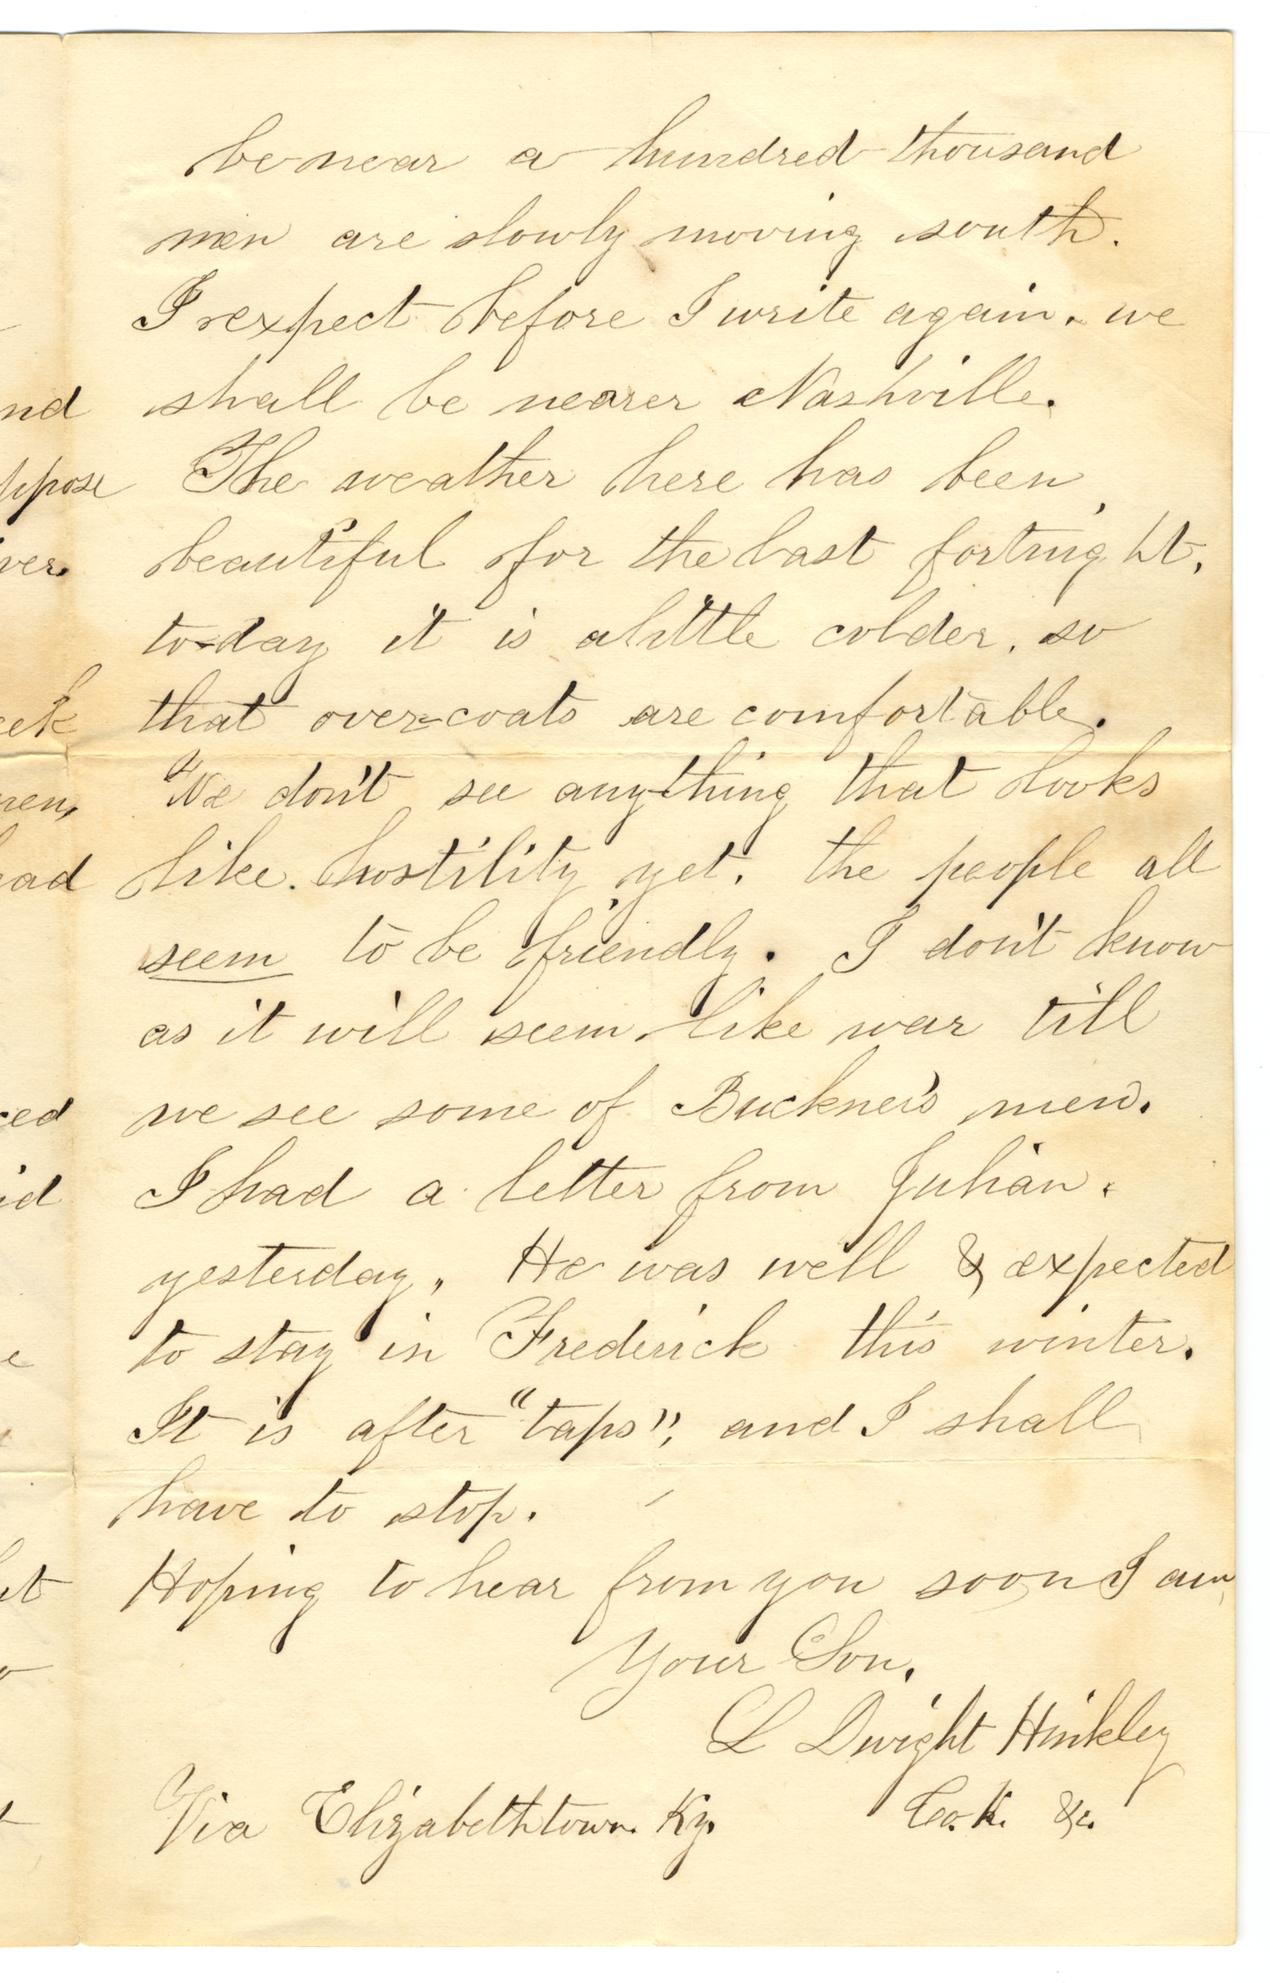 be near a hundred thousand
men are slowly moving south.
I expect before I write again, we
shall be nearer Nashville.
The weather here has been
beautiful for the last fortnight,
to-day it is a little colder, so
that over-coats are comfortable.
We don't see anything that looks
like hostility yet. the people all
seem to be friendly. I don't know
as it will seem like war till
we see some of Buckner's men.
I had a letter from Julian
yesterday, He was well & expected
to stay in Frederick this winter.
It is after "taps", and I shall
have to stop.
Hoping to hear from you soon I am
Your Son,
L Dwight Hinkley
Via Elizabethtown. Ky. Co. K. &c.
nd
ppose
ver.
eek
men,
ead
ced
id
e